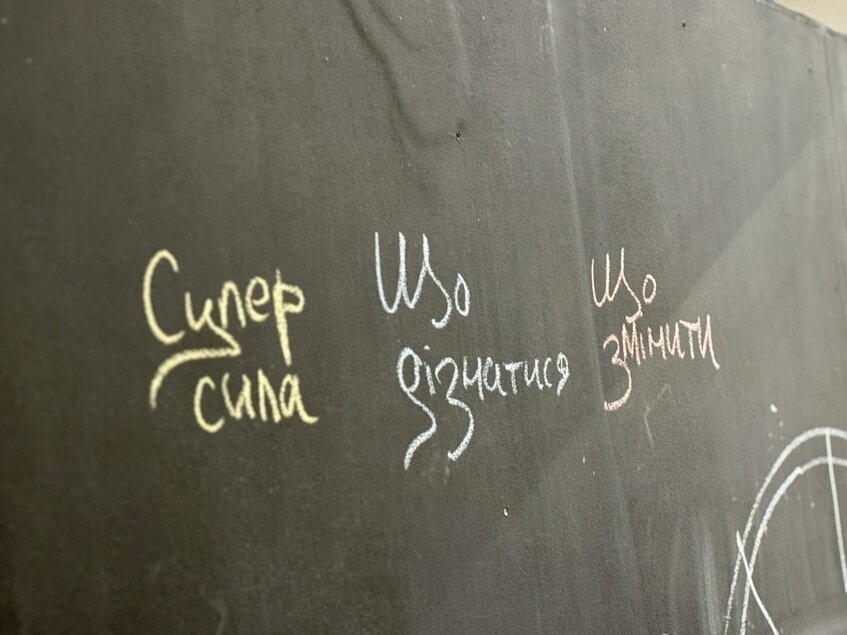 Супер
сила
Що
дізнатися
Що
змінити